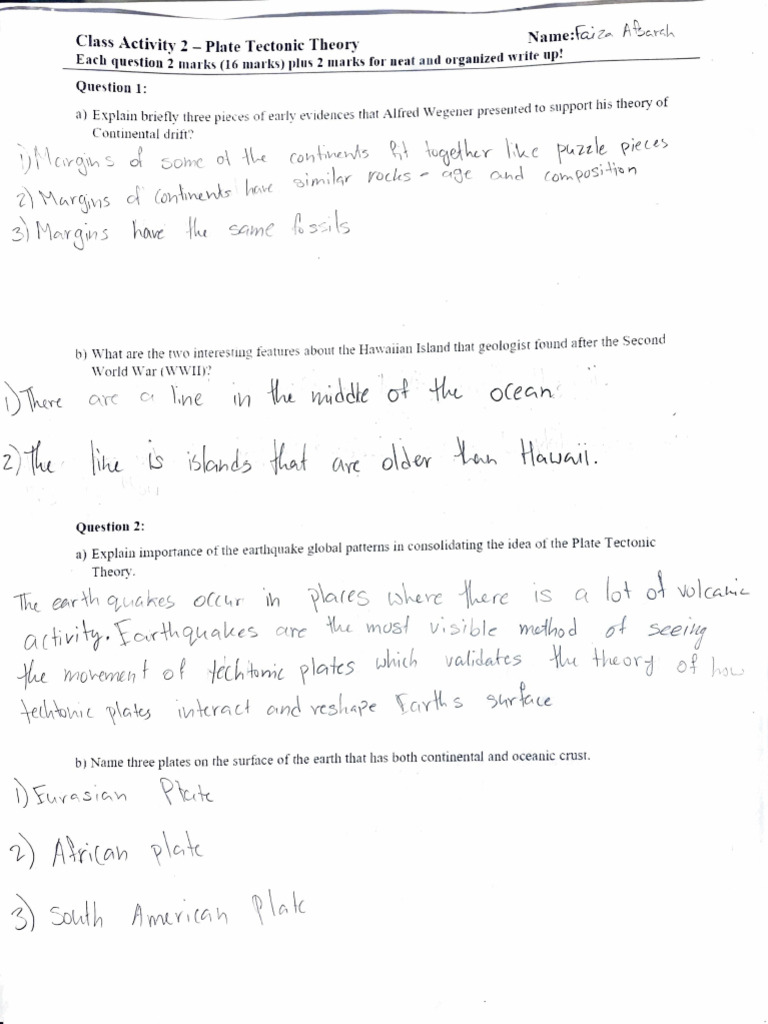 Class Activity 2 – Plate Tectonic Theory Name: Faiza Afbarah
Each question 2 marks (16 marks) plus 2 marks for neat and organized write up!
Question 1:
a) Explain briefly three pieces of early evidences that Alfred Wegener presented to support his theory of
Continental drift?
1) Margins of some of the continents fit together like puzzle pieces
2) Margins of continents have similar rocks - age and composition
3) Margins have the same fossils
b) What are the two interesting features about the Hawaiian Island that geologist found after the Second
World War (WWII)?
1) There are a line in the middle of the ocean
2) The line is islands that are older than Hawaii.
Question 2:
a) Explain importance of the earthquake global patterns in consolidating the idea of the Plate Tectonic
Theory.
The earthquakes occur in places where there is a lot of volcanic
activity. Earthquakes are the most visible method of seeing
the movement of techtonic plates which validates the theory of how
techtonic plates interact and reshape Earths surface
b) Name three plates on the surface of the earth that has both continental and oceanic crust.
1) Eurasian Plate
2) African plate
3) South American Plate